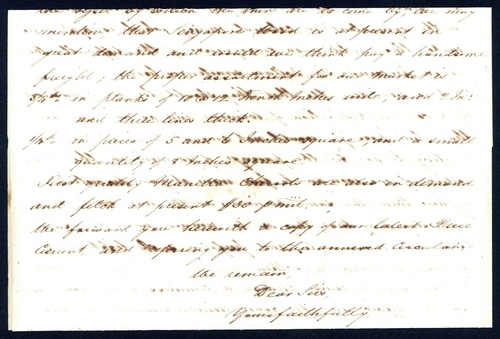 to come by, we may
mention that Singapore wood is at present in
great demand and would we think pay a handsome
freight; the proper assortment for our market is
3/4ths in planks of 10 a 12 inches wide, and 2 In:
and three inches thick.
1/4th in pieces of 5 and 6 Inches square and a small
quantity of 8 Inches square
First quality Manilla Cheroots are also in demand
and fetch at present $30 p mil.
We forward you herewith a copy of our latest Price
Current, and referring you to the annexed Circular
We remain,
Dear Sirs,
Yours faithfully